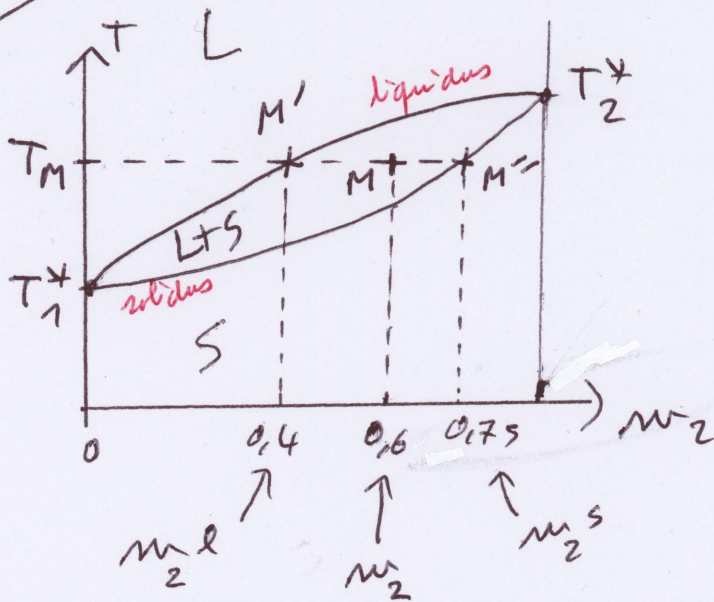 T L
liquidus
T₂*
M'
T_M
M M"
L+S
T₁*
solidus
S
0 0,4 0,6 0,75 w₂
w₂ˡ w₂ w₂ˢ